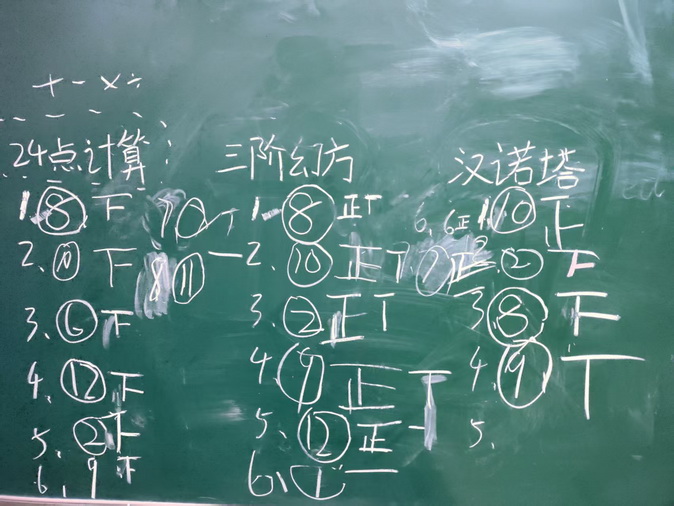 + - × ÷
24点计算
1. ⑧ 下
2、⑪ 下
3、⑥ 下
4、⑫ 下
5、② 下
6、9 下
8 ⑪ 一
三阶幻方
1、⑧ 正丅
2、⑩ 正丅
3、② 正丅
4、⑨ 正丅
5、⑫ 正一
6、① 一
6、6正
⑦ 正
汉诺塔
1 ⑩ 正
2、② 下
3 ⑧ 下
4、⑨ 丅
5、